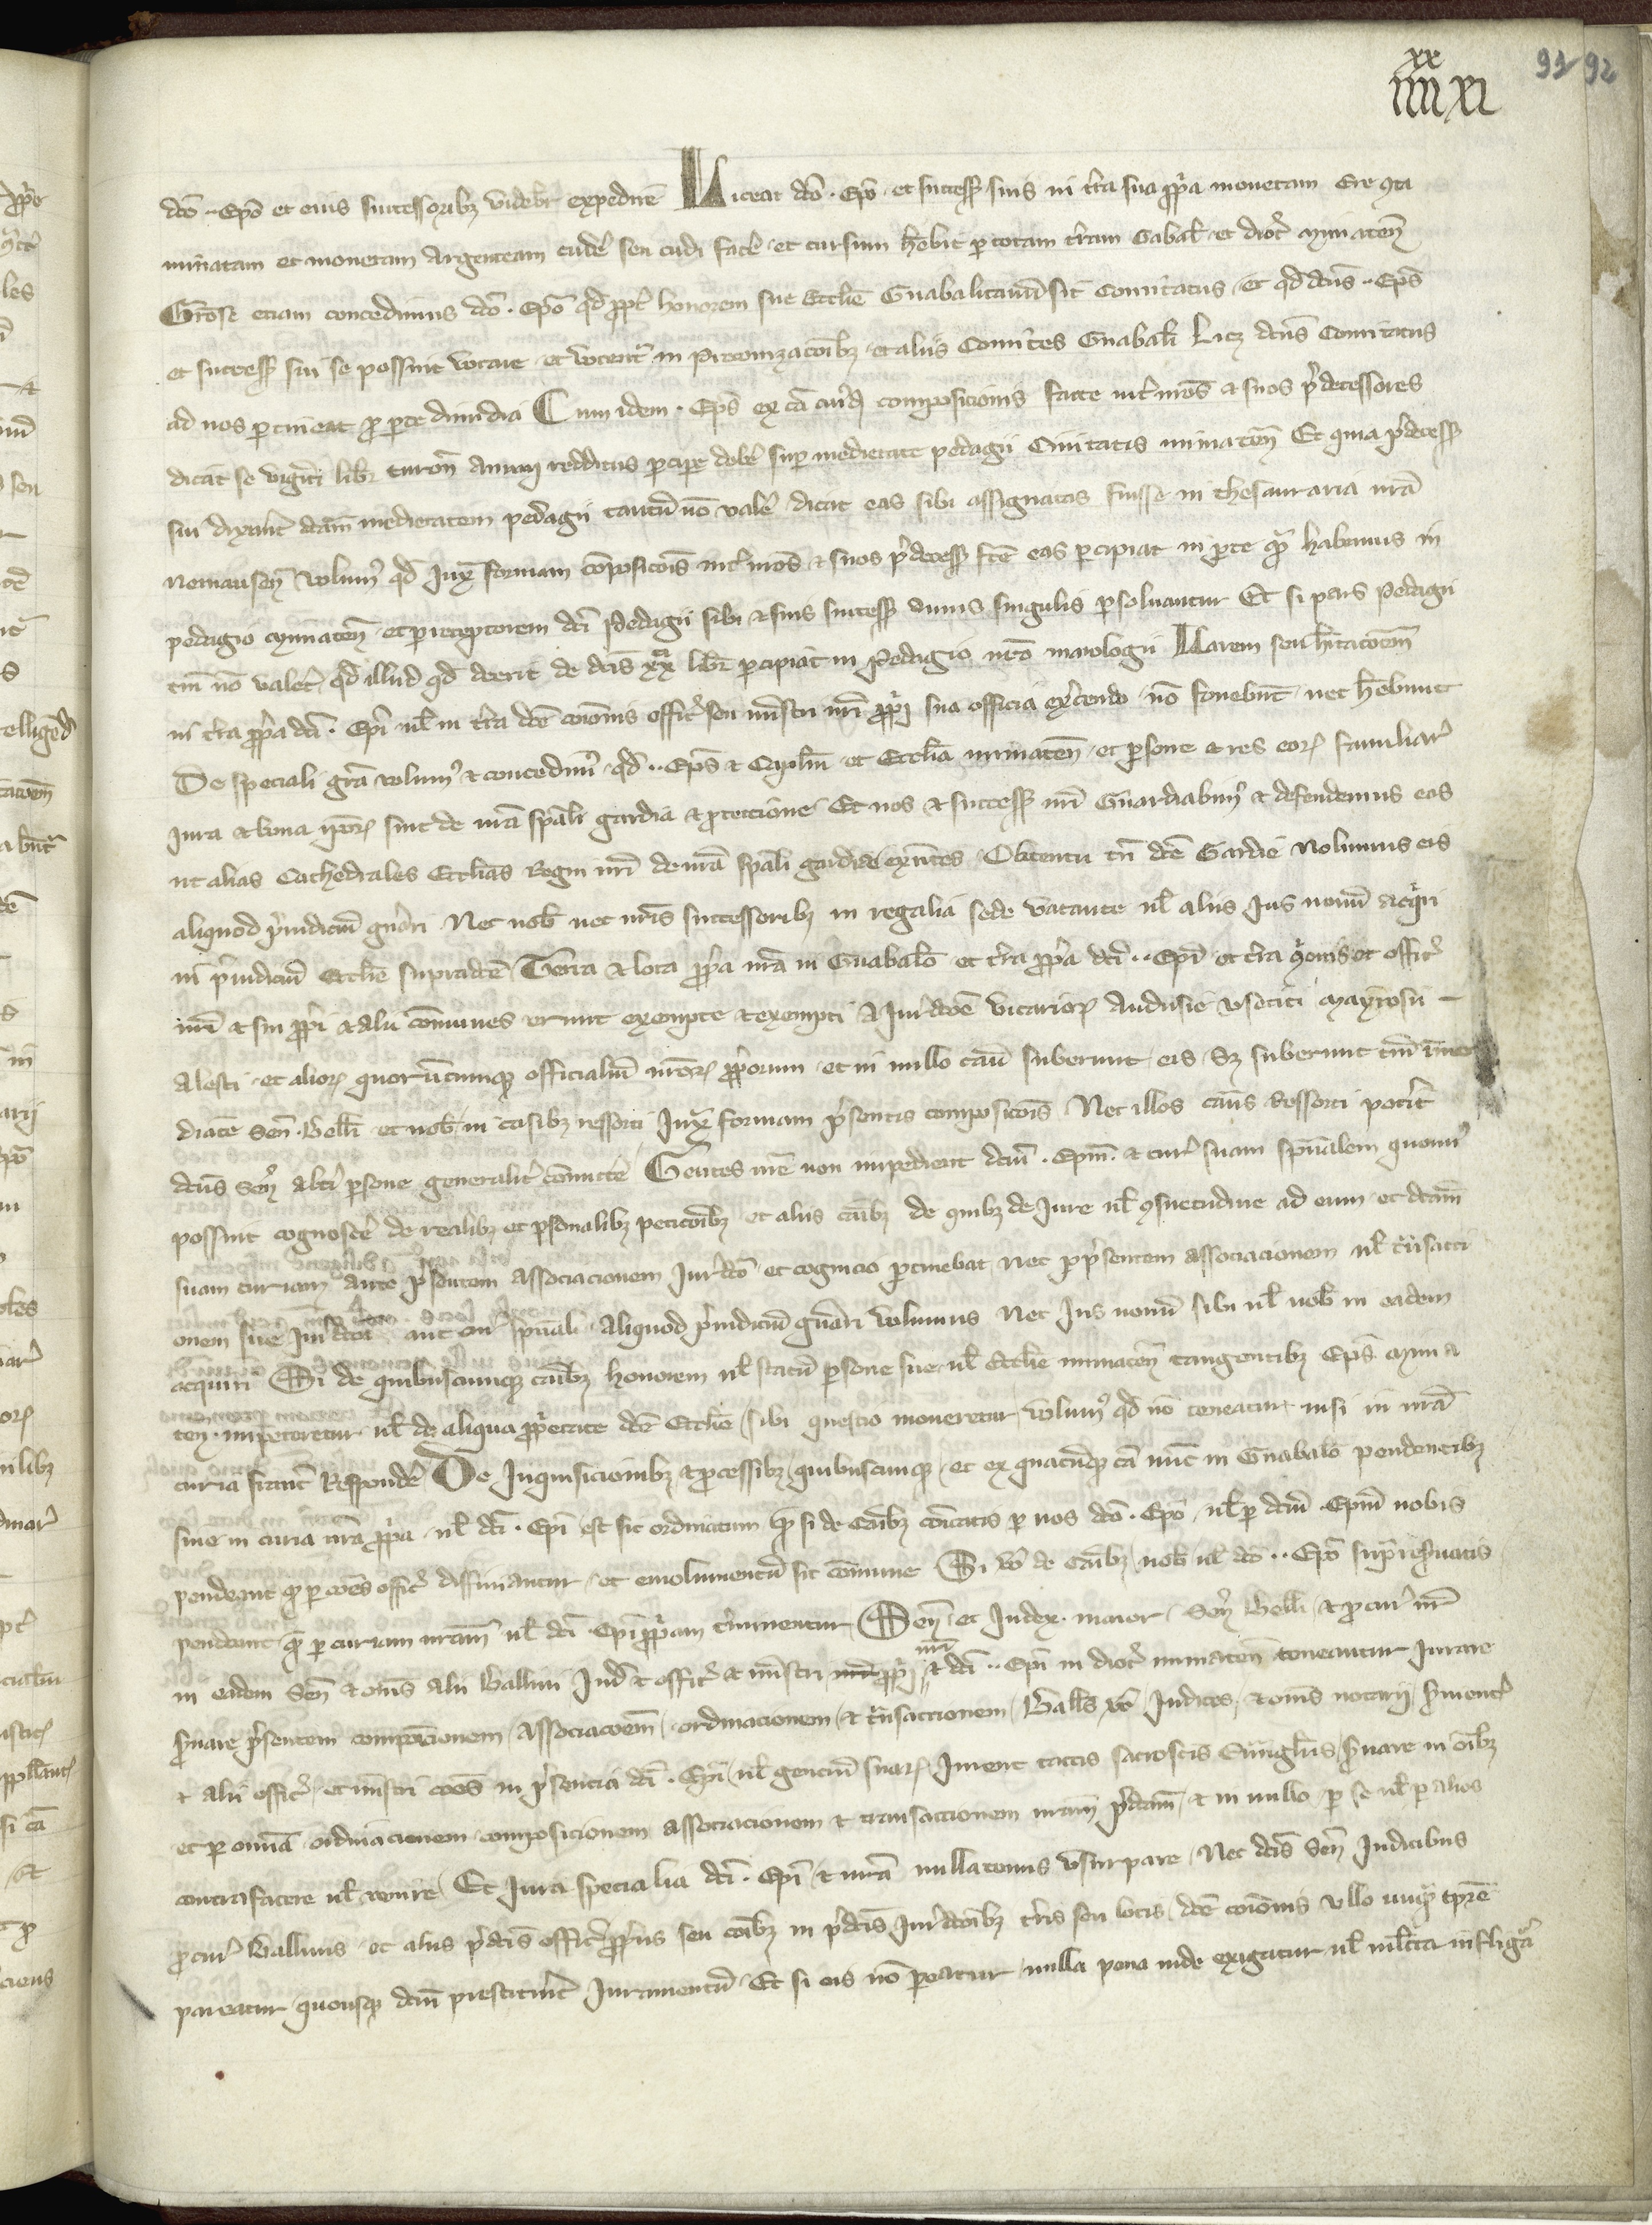 xx
iiii xi
91 92
dc̄o .. Ep̄o et eius successoribꝫ videbit᷑ expedire Liceat dc̄o . Ep̄o . et successoꝝ suis in t̄ra sua ꝓp̄a monetam Ere ꝯta
minatam et monetam argenteam cudẽ seu cudi facẽ . et cursum h̃ebit p totam t̃ram Gabal̃ . et dioc̃ Mimateñ
Gros᷑ etiam concedimus dc̄o . Ep̄o qd̃ ꝓpt̃ honorem sue Ecclie᷑ Guabalitanũ sit Comitatus . Et qd̃ dc̄us .. Ep̄s
et successoꝝ sui se possint vocare et vocent᷑ in Preconizac̃oibꝫ et aliis Comites Guabali Licꝫ dc̄us Comitatus
ad nos ptineat ꝓ pte dimidia Cum idem . Ep̄s ex cã cuiꝰdã composicionis facte int̃ nr̃os et suos p̃decessores
dicat se viginti libr̃ turoñ annui redditus pcipe debẽ sup medietate pedagii Civitatis mimateñ Et quia p̃decess̃
sui dixerũt dc̃am medietatem pedagii tantũ nõ valẽ dicat eas sibi assignatas fuisse in thesauraria nr̃a
nemauseñ volumꝰ qd̃ Juxta formam cõposicõis int̃ nr̃os et suos p̃decess̃ fc̃e eas pcipiat in pte quã habemus in
pedagio Mimateñ . et p receptorem dc̃i Pedagii sibi et suis success̃ annis singulis psolvantur Et si pars Pedagii
tm̃ nõ valet᷑ . qd̃ illud qd̃ deerit de dc̃is xx libr̃ pcipiat in Pedagio nr̃o marologii Larem seu h̃itacõem
in t̃ra ꝓp̃a dc̃i . Ep̃i ul̃ in t̃ra dc̃e cõionis offic̃ seu mĩstri nr̃i ꝓp̃i sua officia ex̃cendo . nõ fovebũt . nec h̃ebunt
De speciali gr̃a volumꝰ et concedimꝰ . qd̃ .. Ep̃s et Caplm̃ et Ecclia᷑ mimateñ . et psone et res eoꝝ familiar̃
Jura et bona ip̃oꝝ sint de nr̃a sp̃ali gardia et ꝓtectione Et nos et success̃ nr̃i Guardiabimꝰ et defendemus eos
ut alias Cathedrales Ecclias᷑ Regni nr̃i de nr̃a sp̃ali gardia ex̃ntes Obtentu tñ dc̃e Gardie Nolumus eis
aliquod p̃iudiciũ gñari Nec nob̃ nec nr̃is successoribꝫ in regalia sede vacante ul̃ aliis Jus novũ acq̃ri
in p̃iudiciũ Ecclie᷑ supradc̃e Terra et loca ꝓp̃a nr̃a in Guabalo et t̃ra ꝓp̃a dc̃i .. Ep̃i et t̃ra cõionis et offic̃
nr̃i et sui ꝓp̃i et alii cõmunes erunt exempte et exempti A Jur̃dcõe vicarioꝝ Andusie Usecii Mayrosii
Alesti . et alioꝝ quorũcumqꝫ officialiũ nr̃oꝝ ꝓp̃orum . et in nullo casu suberunt eis . Sꝫ suberunt tm̃ ĩme
diate Señ . Belli᷑ et nob̃ in casibꝫ ressorti Juxta formam p̃sentis composicõis Nec illos casus Ressorti potit᷑
dc̃us Señ alt̃i psone generalit̃ cõmictẽ Gentes nr̃e non impedient dc̃m . Ep̃m . et cur̃ suam sp̃ualem quomĩꝰ
possint cognoscẽ de realibꝫ et psonalibꝫ peticõibꝫ et aliis cãibꝫ de quibꝫ de Jure ul̃ ꝯsuetudine ad eum et dc̃am
suam curiam ante p̃sentem associacionem Jur̃dcõ et cognicio ptinebat nec p p̃sentem associacionem ul̃ trãsacci
onem sue Jur̃dcõi aut cur̃ sp̃uali aliquod p̃iudiciũ gñari volumus Nec Jus novũ sibi ul̃ nob̃ in eadem
acquiri Si de quibuscumqꝫ cãibꝫ honorem ul̃ statũ psone sue ul̃ Ecclie᷑ mimateñ tangentibꝫ Ep̃s Mima
teñ impeteretur ul̃ de aliqua ꝓp̃etate dc̃e Ecclie᷑ sibi questio moveretur . volumꝰ qd̃ nõ teneatur . nisi in nr̃a
curia franc̃ Respondẽ De Inquisicionibꝫ et ꝓcessibꝫ quibuscumqꝫ et ex quacũqꝫ cã nũc in Guabalo pendentibꝫ
sive in curia nr̃a ꝓp̃a ul̃ dc̃i . Ep̃i est sic ordinatum qd̃ si de Cãibꝫ cõicatis p nos dc̃o . Ep̃o . ul̃ p dc̃m . Ep̃m nobis
pendeant qd̃ p cões offic̃ diffiniantur . et emolumentũ sit cõmune Si vo᷑ de Cãibꝫ nob̃ ul̃ dc̃o .. Ep̃o sup̃ reservatis
pendeant qd̃ p curiam nr̃am ul̃ dc̃i . Ep̃i ꝓp̃am t̃minentur Señ et Judex . maior . Señ Belli᷑ et ꝓcur̃ nr̃
in eadem Señ et om̃s alii Ballivi Jud᷑ et offic̃ et mĩstri ꝓp̃i nr̃i et dc̃i .. Ep̃i in dioc̃ mimateñ teneantur Jurare
s̃vare p̃sentem composicionem / associacõem / ordinacionem / et trãsaccionem / Balli᷑s v᷑o Judices / et om̃s notarij / s̃vient᷑
et alii offic̃ . et mĩstri cões in p̃sentia dc̃i . Ep̃i ul̃ gentiũ suaꝝ Jurent tactis sacros᷑cis Euũgliis᷑ s̃vare in oĩbꝫ
et p omĩa ordinacionem composicionem associacionem et transaccionem nr̃am p̃dc̃am et in nullo p se ul̃ p alios
contrafacere ul̃ venire Et Jura specialia dc̃i . Ep̃i et nr̃a nullatenus usurpare . Nec dc̃is Señ Judicibus
ꝓcur̃ Ballivis et aliis p̃dc̃is offic̃ ꝓp̃iis seu cõibꝫ in p̃dc̃is Jur̃dcõibꝫ t̃ris seu locis dc̃e cõionis ullo unq̃ tp̃re
pareatur quousqꝫ dc̃m prestiterĩt Juramentũ . Et si eis nõ pareatur nulla pena inde exigatur ul̃ mulcta infligat᷑